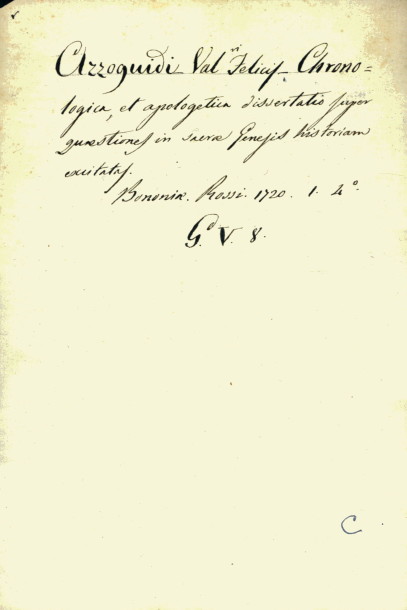 Azzoguidi Val.ri Felicis. Chrono=
logica, et apologetica dissertatio super
quæstiones in sacræ Genesis historiam
excitatas.
Bononiæ. Rossi. 1720. 1. 4º.
G.d V. 8.
C